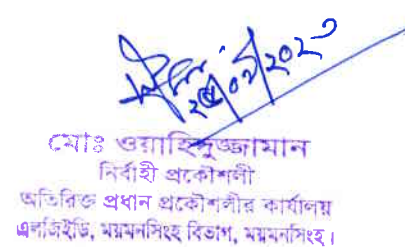 মোঃ ওয়াহিদুজ্জামান
নির্বাহী প্রকৌশলী
অতিরিক্ত প্রধান প্রকৌশলীর কার্যালয়
এলজিইডি, ময়মনসিংহ বিভাগ, ময়মনসিংহ।